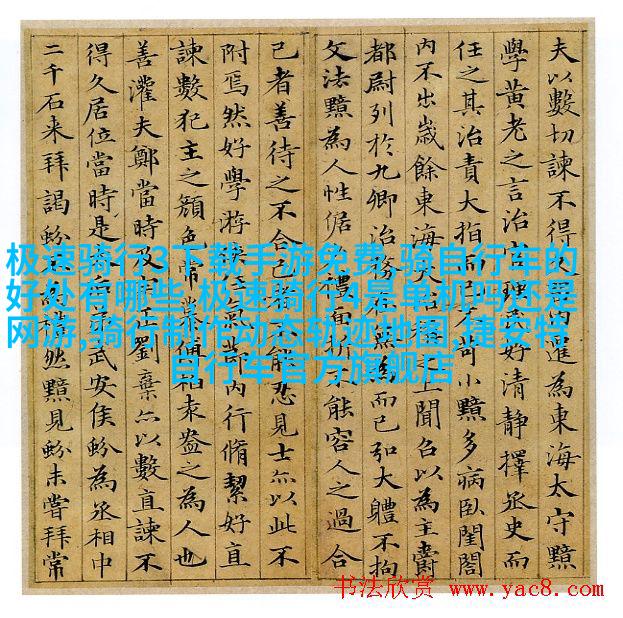 夫以數切諫不得內遷為東海太守黯
學黃老之言治官理民好清静擇丞史而
任之其治責大指而已不苛小黯多病臥閨閤
內不出歲餘東海大治稱之上聞召以為主爵
都尉列於九卿治務在無為而已弘大軆不拘
文法黯為人性倨少禮面折不能容人之過合
己者善待之不合己者不能忍見士亦以此不
附焉然好學游俠任氣節內行脩絜好直
諫數犯主之顏色常慕傅柏袁盎之為人也
善灌夫鄭當時及宗正劉棄亦以數直諫不
得久居位當時是太后弟武安侯蚡為丞相中
二千石来拜謁蚡不為禮然黯見蚡未嘗拜常
极速骑行3下载手游免费,骑自行车的
好处有哪些,极速骑行4是单机吗还是
网游,骑行制作动态轨迹地图,捷安特
自行车官方旗舰店
书法欣赏 www.yac8.com